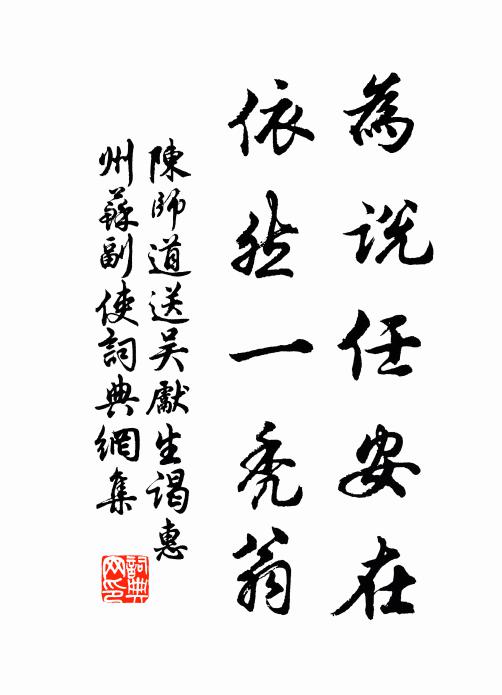 為說任安在
依然一禿翁
陳師道送吴獻生謁惠
州蘇副使詞典網集
詞典
网印